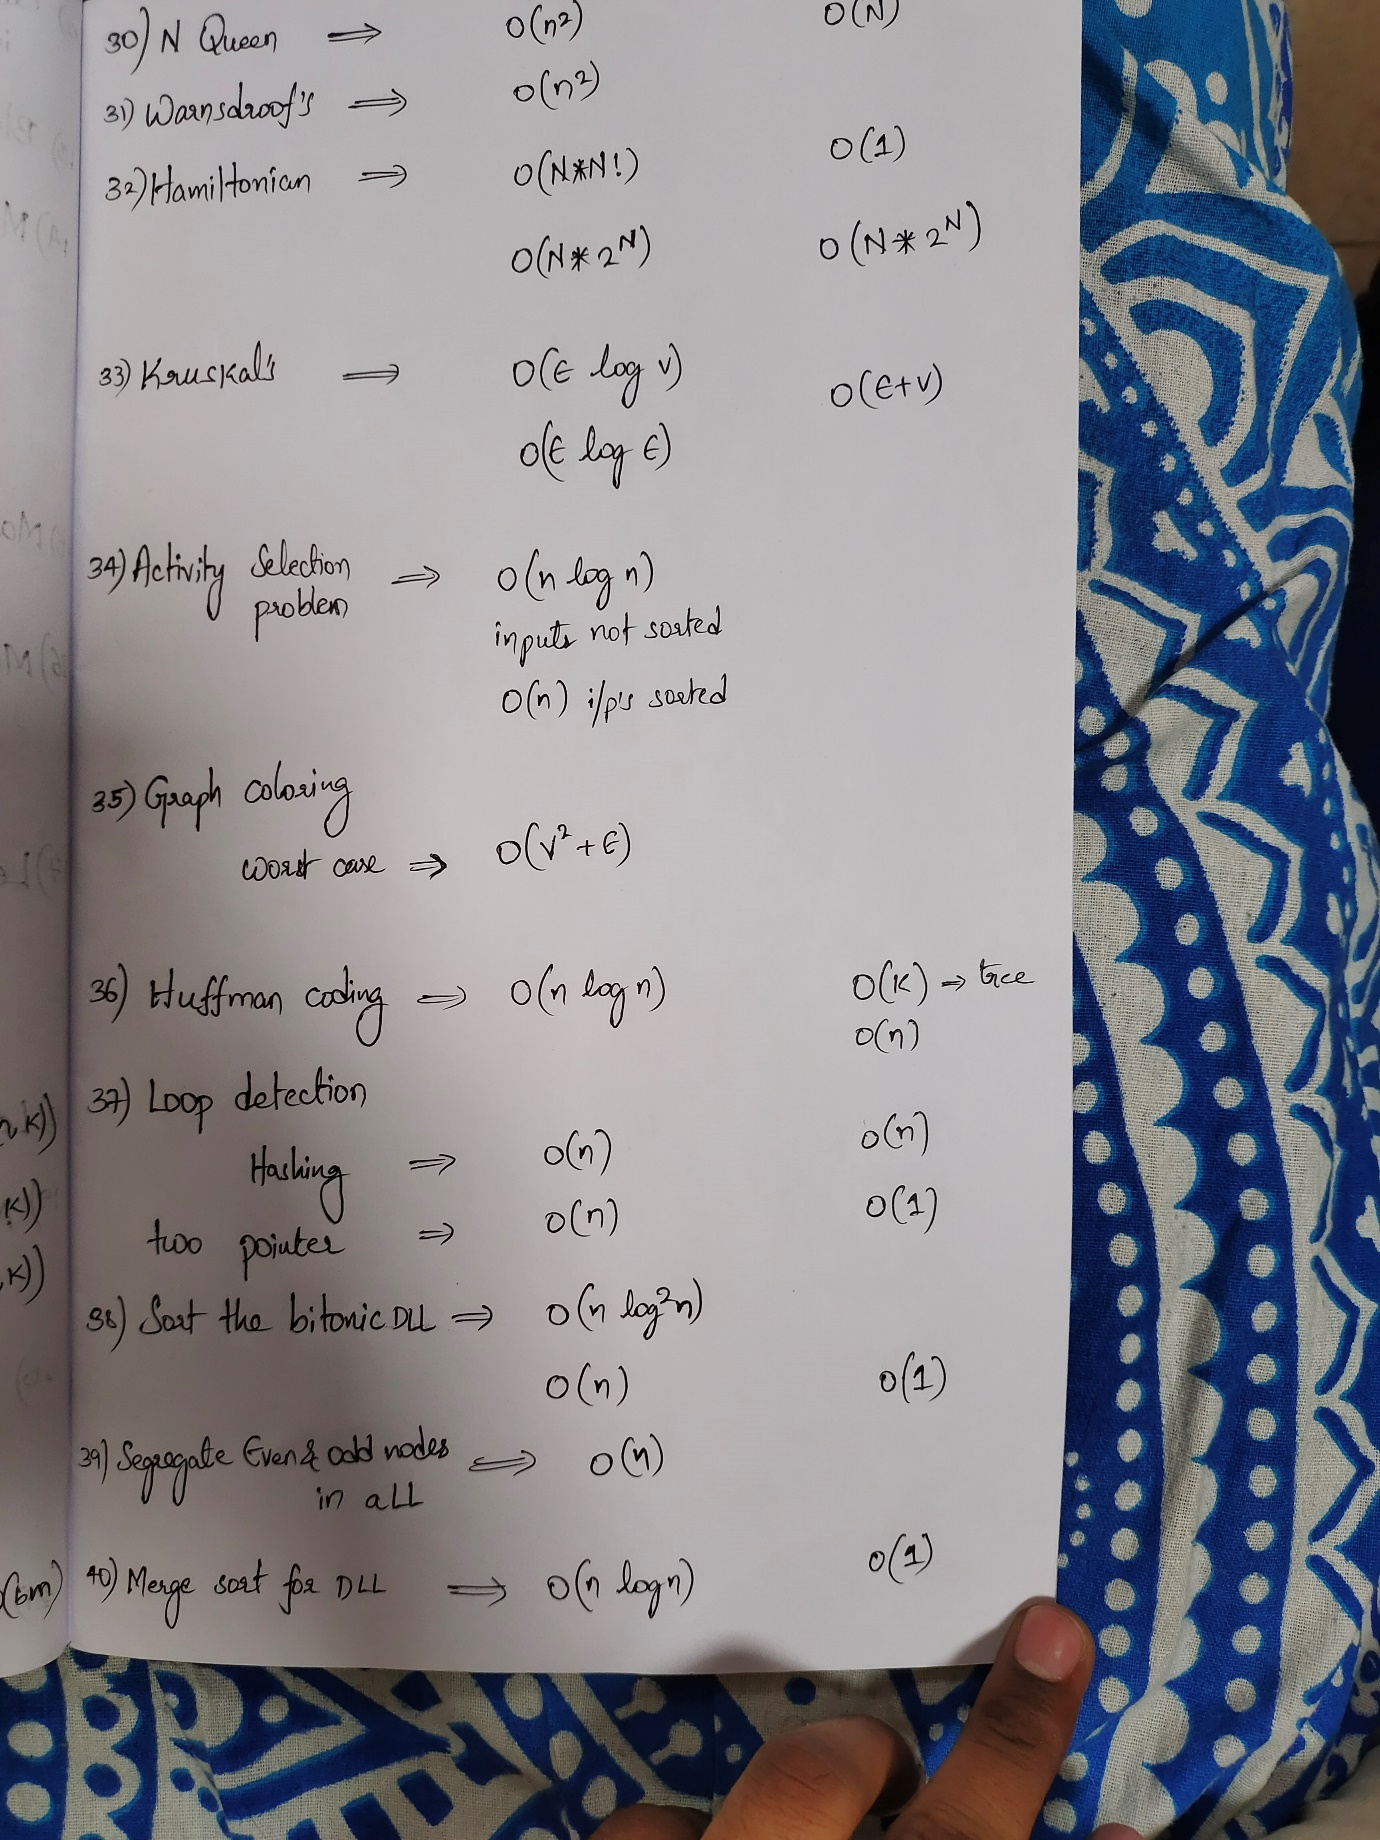 30) N Queen ⇒ O(n²) O(N)
31) Warnsdroof's ⇒ O(n²)
32) Hamiltonian ⇒ O(N*N!) O(1)
O(N*2^N) O(N*2^N)
33) Kruskal's ⇒ O(E log V) O(E+V)
O(E log E)
34) Activity Selection ⇒ O(n log n)
problem
inputs not sorted
O(n) i/p's sorted
35) Graph coloring
worst case ⇒ O(V²+E)
36) Huffman coding ⇒ O(n log n) O(K) ⇒ tree
O(n)
37) Loop detection
Hashing ⇒ O(n) O(n)
two pointer ⇒ O(n) O(1)
38) Sort the bitonic DLL ⇒ O(n log²n)
O(n) O(1)
39) Segregate Even & odd nodes ⇒ O(n)
in a LL
40) Merge sort for DLL ⇒ O(n logn) O(1)
K))
K))